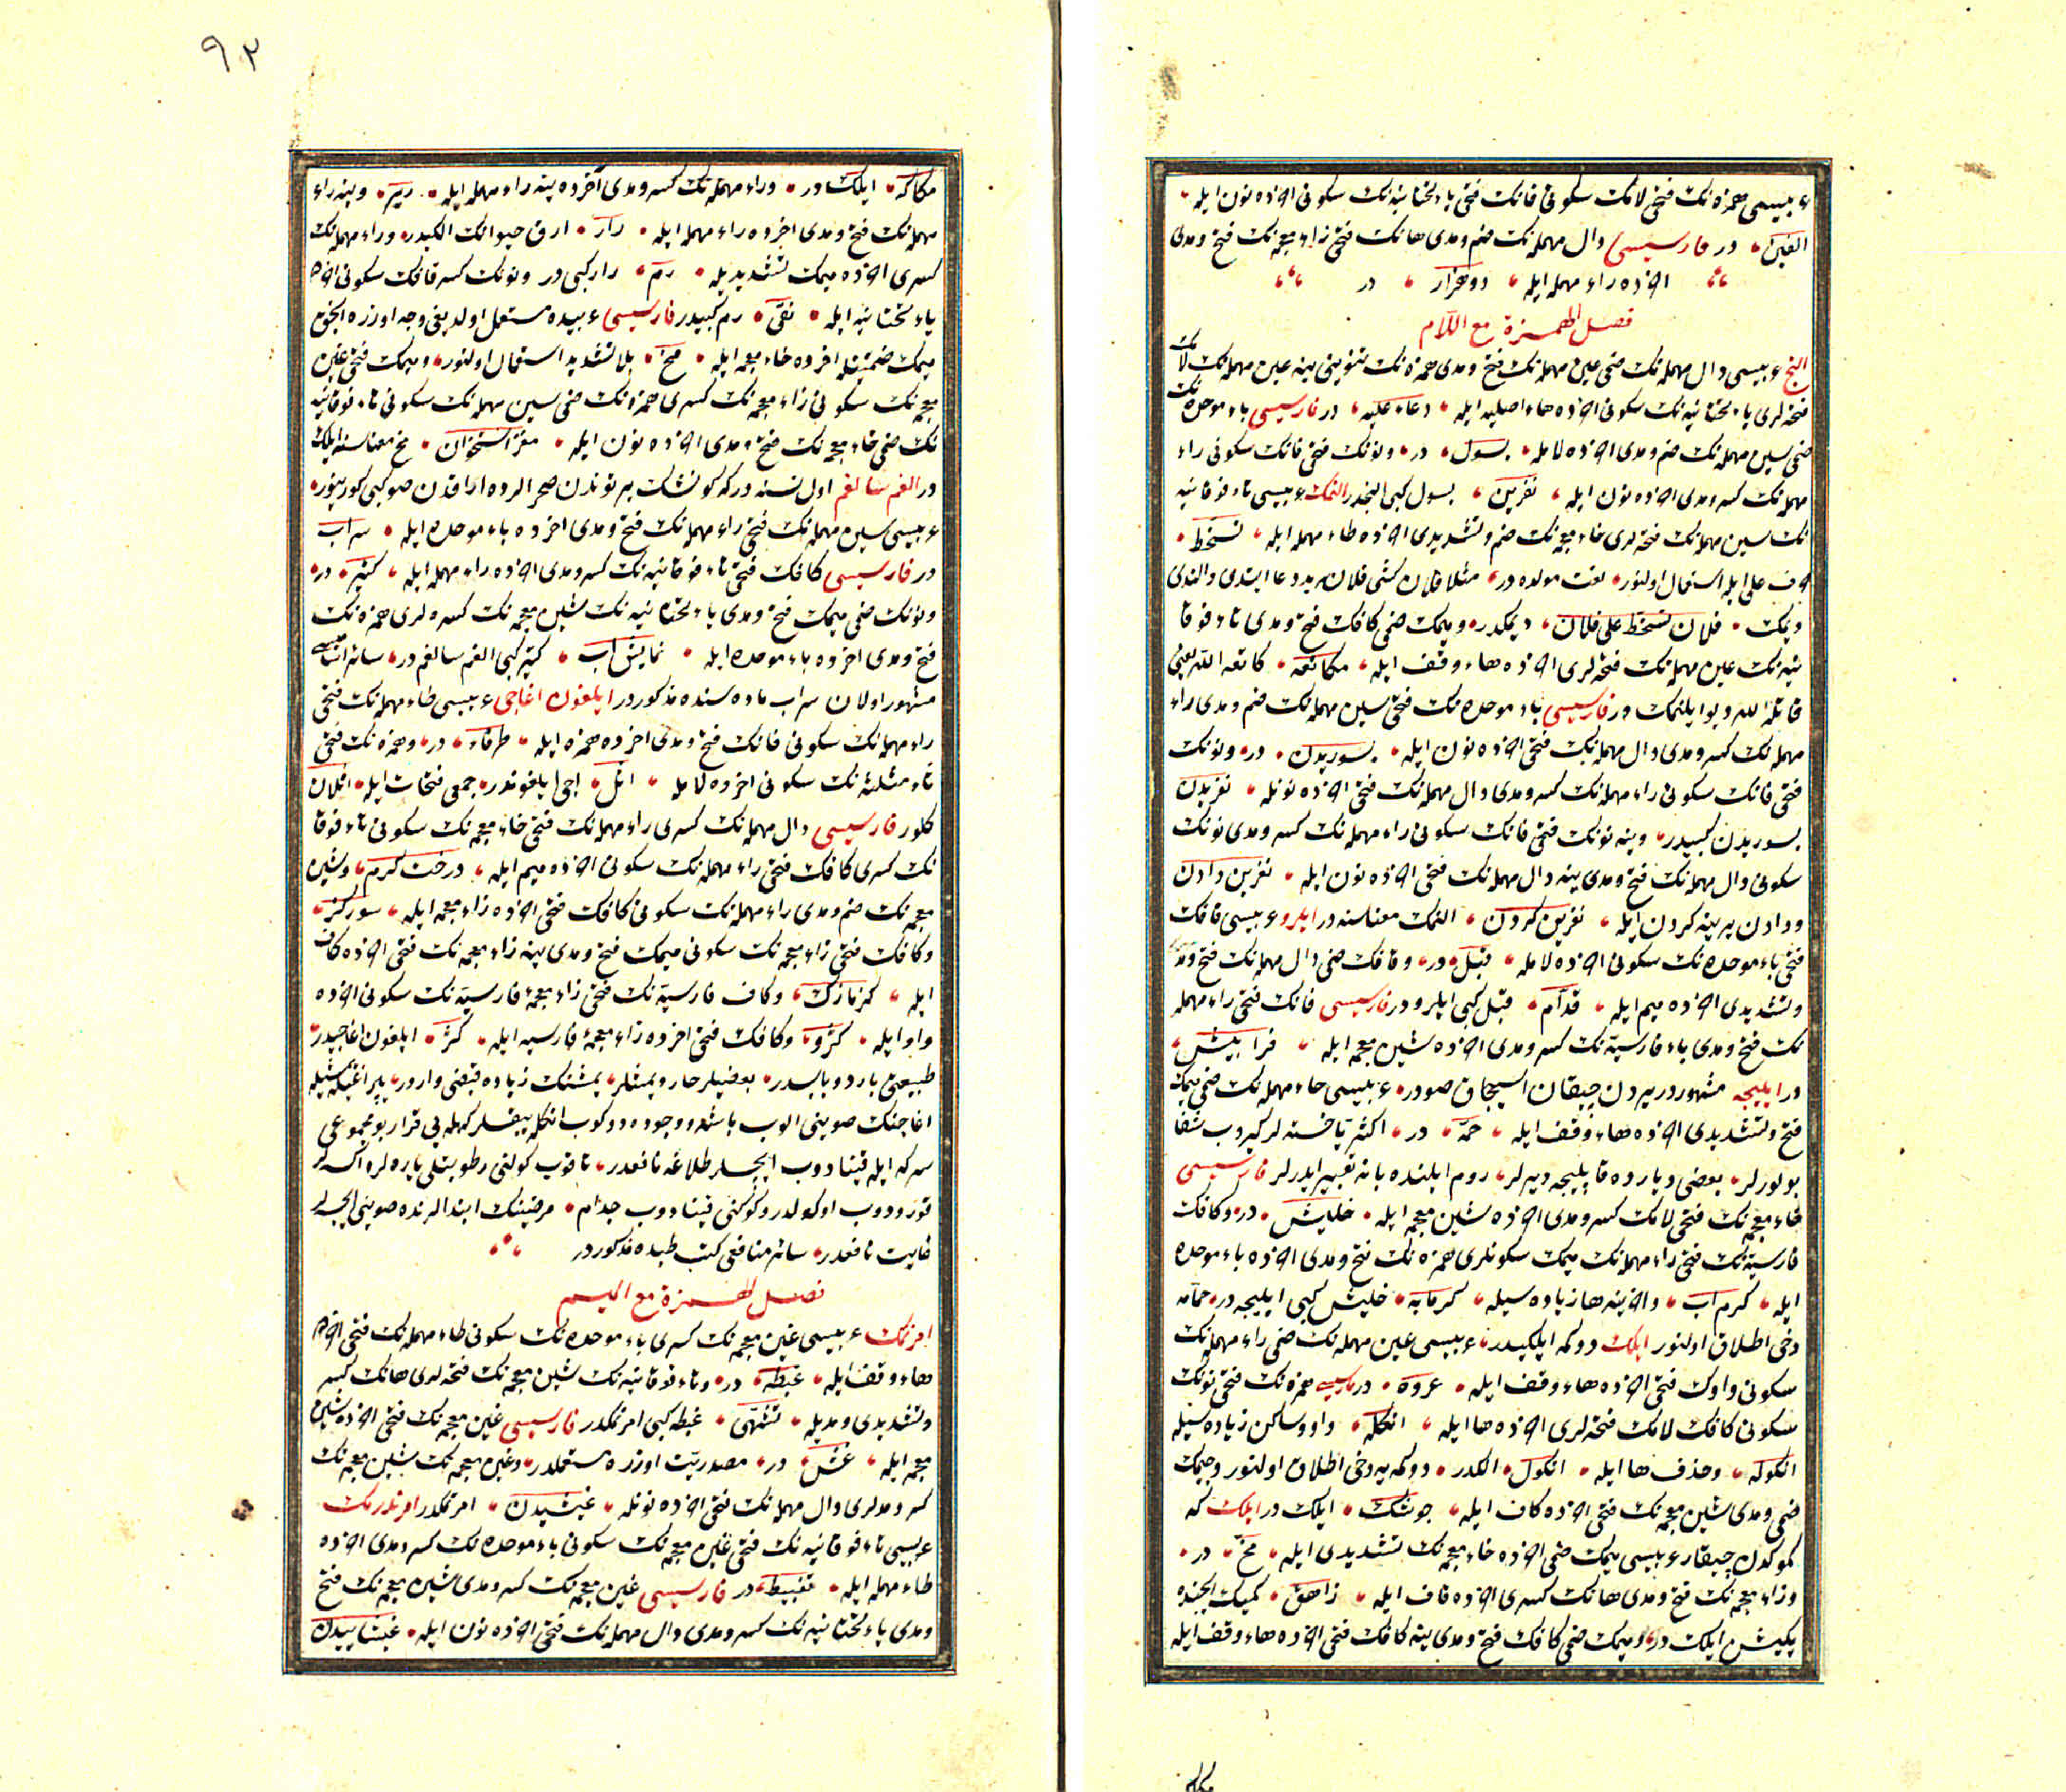 عربیسی همزه‌نك فتحی لامك سكونی فانك فتحی یاء تحتانیه‌نك سكونی آخرده نون ایله
الفین در فارسیسی دال مهمله‌نك ضم و مدی هانك فتحی زاء معجمه‌نك فتح و مدی
آخرده راء مهمله ایله دوهزار در
فصل الهمزة مع اللام
عربیسی دال مهمله‌نك ضمی عین مهمله‌نك فتح و مدی همزه‌نك تنوینی ینه عین مهمله‌نك لامك
فتحه‌لری یاء تحتانیه‌نك سكونی آخرده هاء اصلیه ایله دعاء علیه در فارسیسی باء موحده‌نك
ضمی سین مهمله‌نك ضم و مدی آخرده لامله بسول در و نونك فتحی فانك سكونی راء
مهمله‌نك كسر و مدی آخرده نون ایله نفرین بسول كبی النجدر النمك عربیسی تاء فوقانیه
نك سین مهمله‌نك فتحه‌لری خاء معجمه‌نك ضم و تشدیدی آخرده طاء مهمله ایله تسخط
حرف علی ایله استعمال اولنور لغت مولده در مثلا فلان كشی فلانه بددعا ایتدی و النمدی
دیمك فلان تسخط علی فلان دیمكدر و میمك ضمی كافك فتح و مدی تاء فوقا
نیه‌نك عین مهمله‌نك فتحه‌لری آخرده هاء وقف ایله مكاتعه كاتعه الله یعنی
قاتله الله و بوایلنمك در فارسیسی باء موحده‌نك فتحی سین مهمله‌نك ضم و مدی راء
مهمله‌نك كسر و مدی دال مهمله‌نك فتحی آخرده نون ایله بسوریدن در و نونك
فتحی فانك سكونی راء مهمله‌نك كسر و مدی دال مهمله‌نك فتحی آخرده نونله نفریدن
بسوریدن كبیدر و ینه نونك فتحی فانك سكونی راء مهمله‌نك كسر و مدی نونك
سكونی دال مهمله‌نك فتح و مدی ینه دال مهمله‌نك فتحی آخرده نون ایله نفرین دادن
و دادن یرینه كردن ایله نفرین كردن النمك معناسنه در ایلرو عربیسی قافك
فتحی باء موحده‌نك سكونی آخرده لامله قبل در و قافك ضمی دال مهمله‌نك فتح و مد
و تشدیدی آخرده میم ایله قدام قبل كبی ایلرو در فارسیسی فانك فتحی راء مهمله
نك فتح و مدی باء فارسیه‌نك كسر و مدی آخرده شین معجمه ایله فراپیش
در ایلیجه مشهوردر یردن چیقان اسیجاق صودر عربیسی حاء مهمله‌نك ضمی میمك
فتح و تشدیدی آخرده هاء وقف ایله حمه در اكثریا خسته‌لر كیروب شفا
بولورلر بعضی دیارده قاپلیجه دیرلر روم ایلنده بانه تعبیر ایدرلر فارسیسی
خاء معجمه‌نك فتحی لامك كسر و مدی آخرده شین معجمه ایله خلیش در و كافك
فارسیه‌نك فتحی راء مهمله‌نك میمك سكونلری همزه‌نك فتح و مدی آخرده باء موحده
ایله كرم آب و آخرینه ها زیاده‌سیله كرمابه خلیش كبی ایلیجه در حمامه
دخی اطلاق اولنور ایلك دوكمه ایلكیدر عربیسی عین مهمله‌نك ضمی راء مهمله‌نك
سكونی واوك فتحی آخرده هاء وقف ایله عروه در فارسیسی همزه‌نك فتحی نونك
سكونی كافك لامك فتحه‌لری آخرده ها ایله انكله واو ساكن زیاده‌سیله
انكوله و حذف ها ایله انكول الكدر دوكمه‌یه دخی اطلاق اولنور و جیمك
ضمی و مدی شین معجمه‌نك فتحی آخرده كاف ایله جوشك ایلك در ایلك كه
كموكدن چیقار عربیسی میمك ضمی آخرده خاء معجمه‌نك تشدیدی ایله مخ در
و زاء معجمه‌نك فتح و مدی هانك كسری آخرده قاف ایله زاهق كمیك ایچنده
پكیشن ایلك در و میمك ضمی كافك فتح و مدی ینه كافك فتحی آخرده هاء وقف ایله
٩٣
مكاكه ایلك در و راء مهمله‌نك كسر و مدی آخرده ینه راء مهمله ایله ریر و ینه راء
مهمله‌نك فتح و مدی آخرده راء مهمله ایله رار ارق حیوانك الكیدر و راء مهمله‌نك
كسری آخرده میمك تشدیدیله رم رار كبی در و نونك كسر قافك سكونی آخرده
یاء تحتانیه ایله نقی رم كبیدر فارسیسی عربیده مستعمل اولدیغی وجه اوزره انجق
میمك ضمیله آخرده خاء معجمه ایله مخ بلا تشدید استعمال اولنور و میمك فتحی غین
معجمه‌نك سكونی زاء معجمه‌نك كسری همزه‌نك ضمی سین مهمله‌نك سكونی تاء فوقانیه
نك ضمی خاء معجمه‌نك فتح و مدی آخرده نون ایله مغز استخوان مخ معناسنه ایلك
در الغم سالغم اول نسنه در كه كونشك پرتوندن صحرالرده اراقدن صو كبی كورینور
عربیسی سین مهمله‌نك فتحی راء مهمله‌نك فتح و مدی آخرده باء موحده ایله سراب
در فارسیسی كافك فتحی تاء فوقانیه‌نك كسر و مدی آخرده راء مهمله ایله كتیر در
و نونك ضمی میمك فتح و مدی یاء تحتانیه‌نك شین معجمه‌نك كسره‌لری همزه‌نك
فتح و مدی آخرده باء موحده ایله نمایش آب كتیر كبی الغم سالغم در سائر
مشهور اولان سراب ماده‌سنده مذكوردر ایلغون اغاجی عربیسی طاء مهمله‌نك فتحی
راء مهمله‌نك سكونی فانك فتح و مدی آخرده همزه ایله طرفاء در و همزه‌نك فتحی
ثاء مثلثه‌نك سكونی آخرده لامله اثل اجی ایلغوندر جمعی فتحات ایله اثلان
كلور فارسیسی دال مهمله‌نك كسری راء مهمله‌نك فتحی خاء معجمه‌نك سكونی تاء فوقا
نك كسری كافك فتحی راء مهمله‌نك سكونی آخرده میم ایله درخت كرم و شین
معجمه‌نك ضم و مدی راء مهمله‌نك سكونی كافك فتحی آخرده زاء معجمه ایله شوركز
و كافك فتحی زاء معجمه‌نك سكونی میمك فتح و مدی ینه زاء معجمه‌نك فتحی آخرده كاف
ایله كزمازك و كاف فارسیه‌نك فتحی زاء معجمهٔ فارسیه‌نك سكونی آخرده
واو ایله گژو و كافك فتحی آخرده زاء معجمهٔ فارسیه ایله كژ ایلغون اغاجیدر
طبیعتی بارد و یابسدر بعضیلر حار دیمشلر یمشنك زیاده قبضی واردر
اغاجنك صوینی الوب باشه و وجوده دوكوب انكله ییقسلر كهله‌یی قرار بو مجموعی
سركه ایله قینادوب ایچسلر طلاغه نافعدر یاقوب كولنی رطوبتلی یاره‌لره اكسه‌لر
قورودوب اوكولدر و كوكنی قینادوب جذام مرضینك ابتدالرنده صوینی ایچسه‌لر
غایت نافعدر سائر منافعی كتب طبده مذكوردر
فصل الهمزة مع المیم
امرنمك عربیسی غین معجمه‌نك كسری باء موحده‌نك سكونی طاء مهمله‌نك فتحی آخرده
هاء وقف ایله غبطه در و تاء فوقانیه‌نك شین معجمه‌نك فتحه‌لری هانك كسر
و تشدیدی و مدیله تشهی غبطه كبی امرنمكدر فارسیسی غین معجمه‌نك فتحی آخرده شین
معجمه ایله غش در مصدریت اوزره مستعملدر و غین معجمه‌نك شین معجمه‌نك
كسر و مدلری دال مهمله‌نك فتحی آخرده نونله غیشیدن امرنمكدر امرندرمك
عربیسی تاء فوقانیه‌نك فتحی غین معجمه‌نك سكونی باء موحده‌نك كسر و مدی آخرده
طاء مهمله ایله تغبیط در فارسیسی غین معجمه‌نك كسر و مدی شین معجمه‌نك فتح
و مدی یاء تحتانیه‌نك كسر و مدی دال مهمله‌نك فتحی آخرده نون ایله غیشاییدن